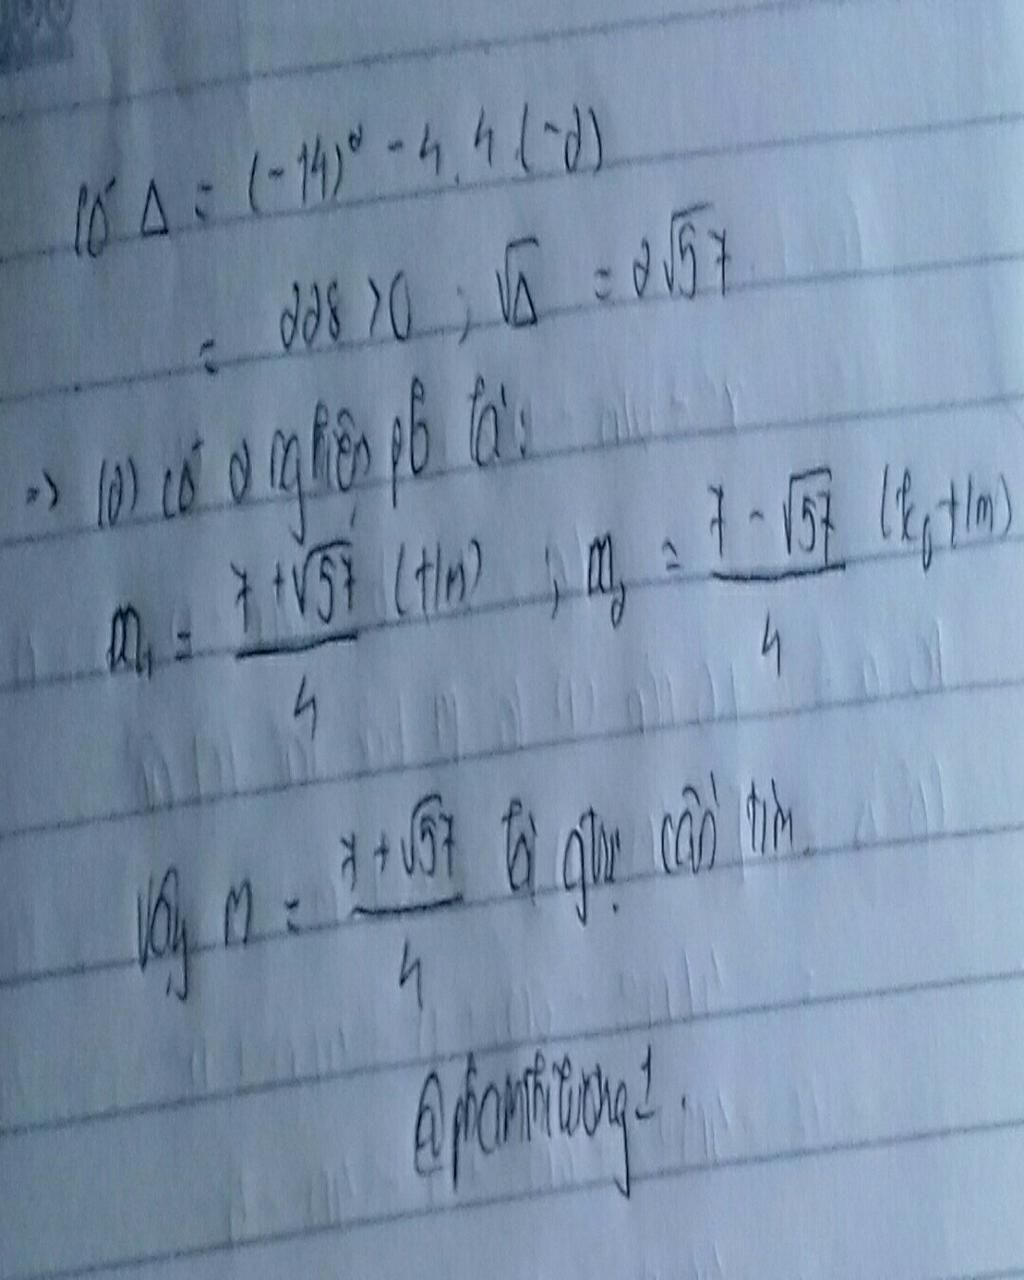 Có Δ = (-14)² - 4.4.(-2)
= 228 > 0 ; √Δ = 2√57
=> (2) có 2 nghiệm pb là:
m₁ = (7 + √57)/4 (t/m) ; m₂ = (7 - √57)/4 (k₀ t/m)
Vậy m = (7 + √57)/4 là gtrị cần tìm.
@phamthituong1.